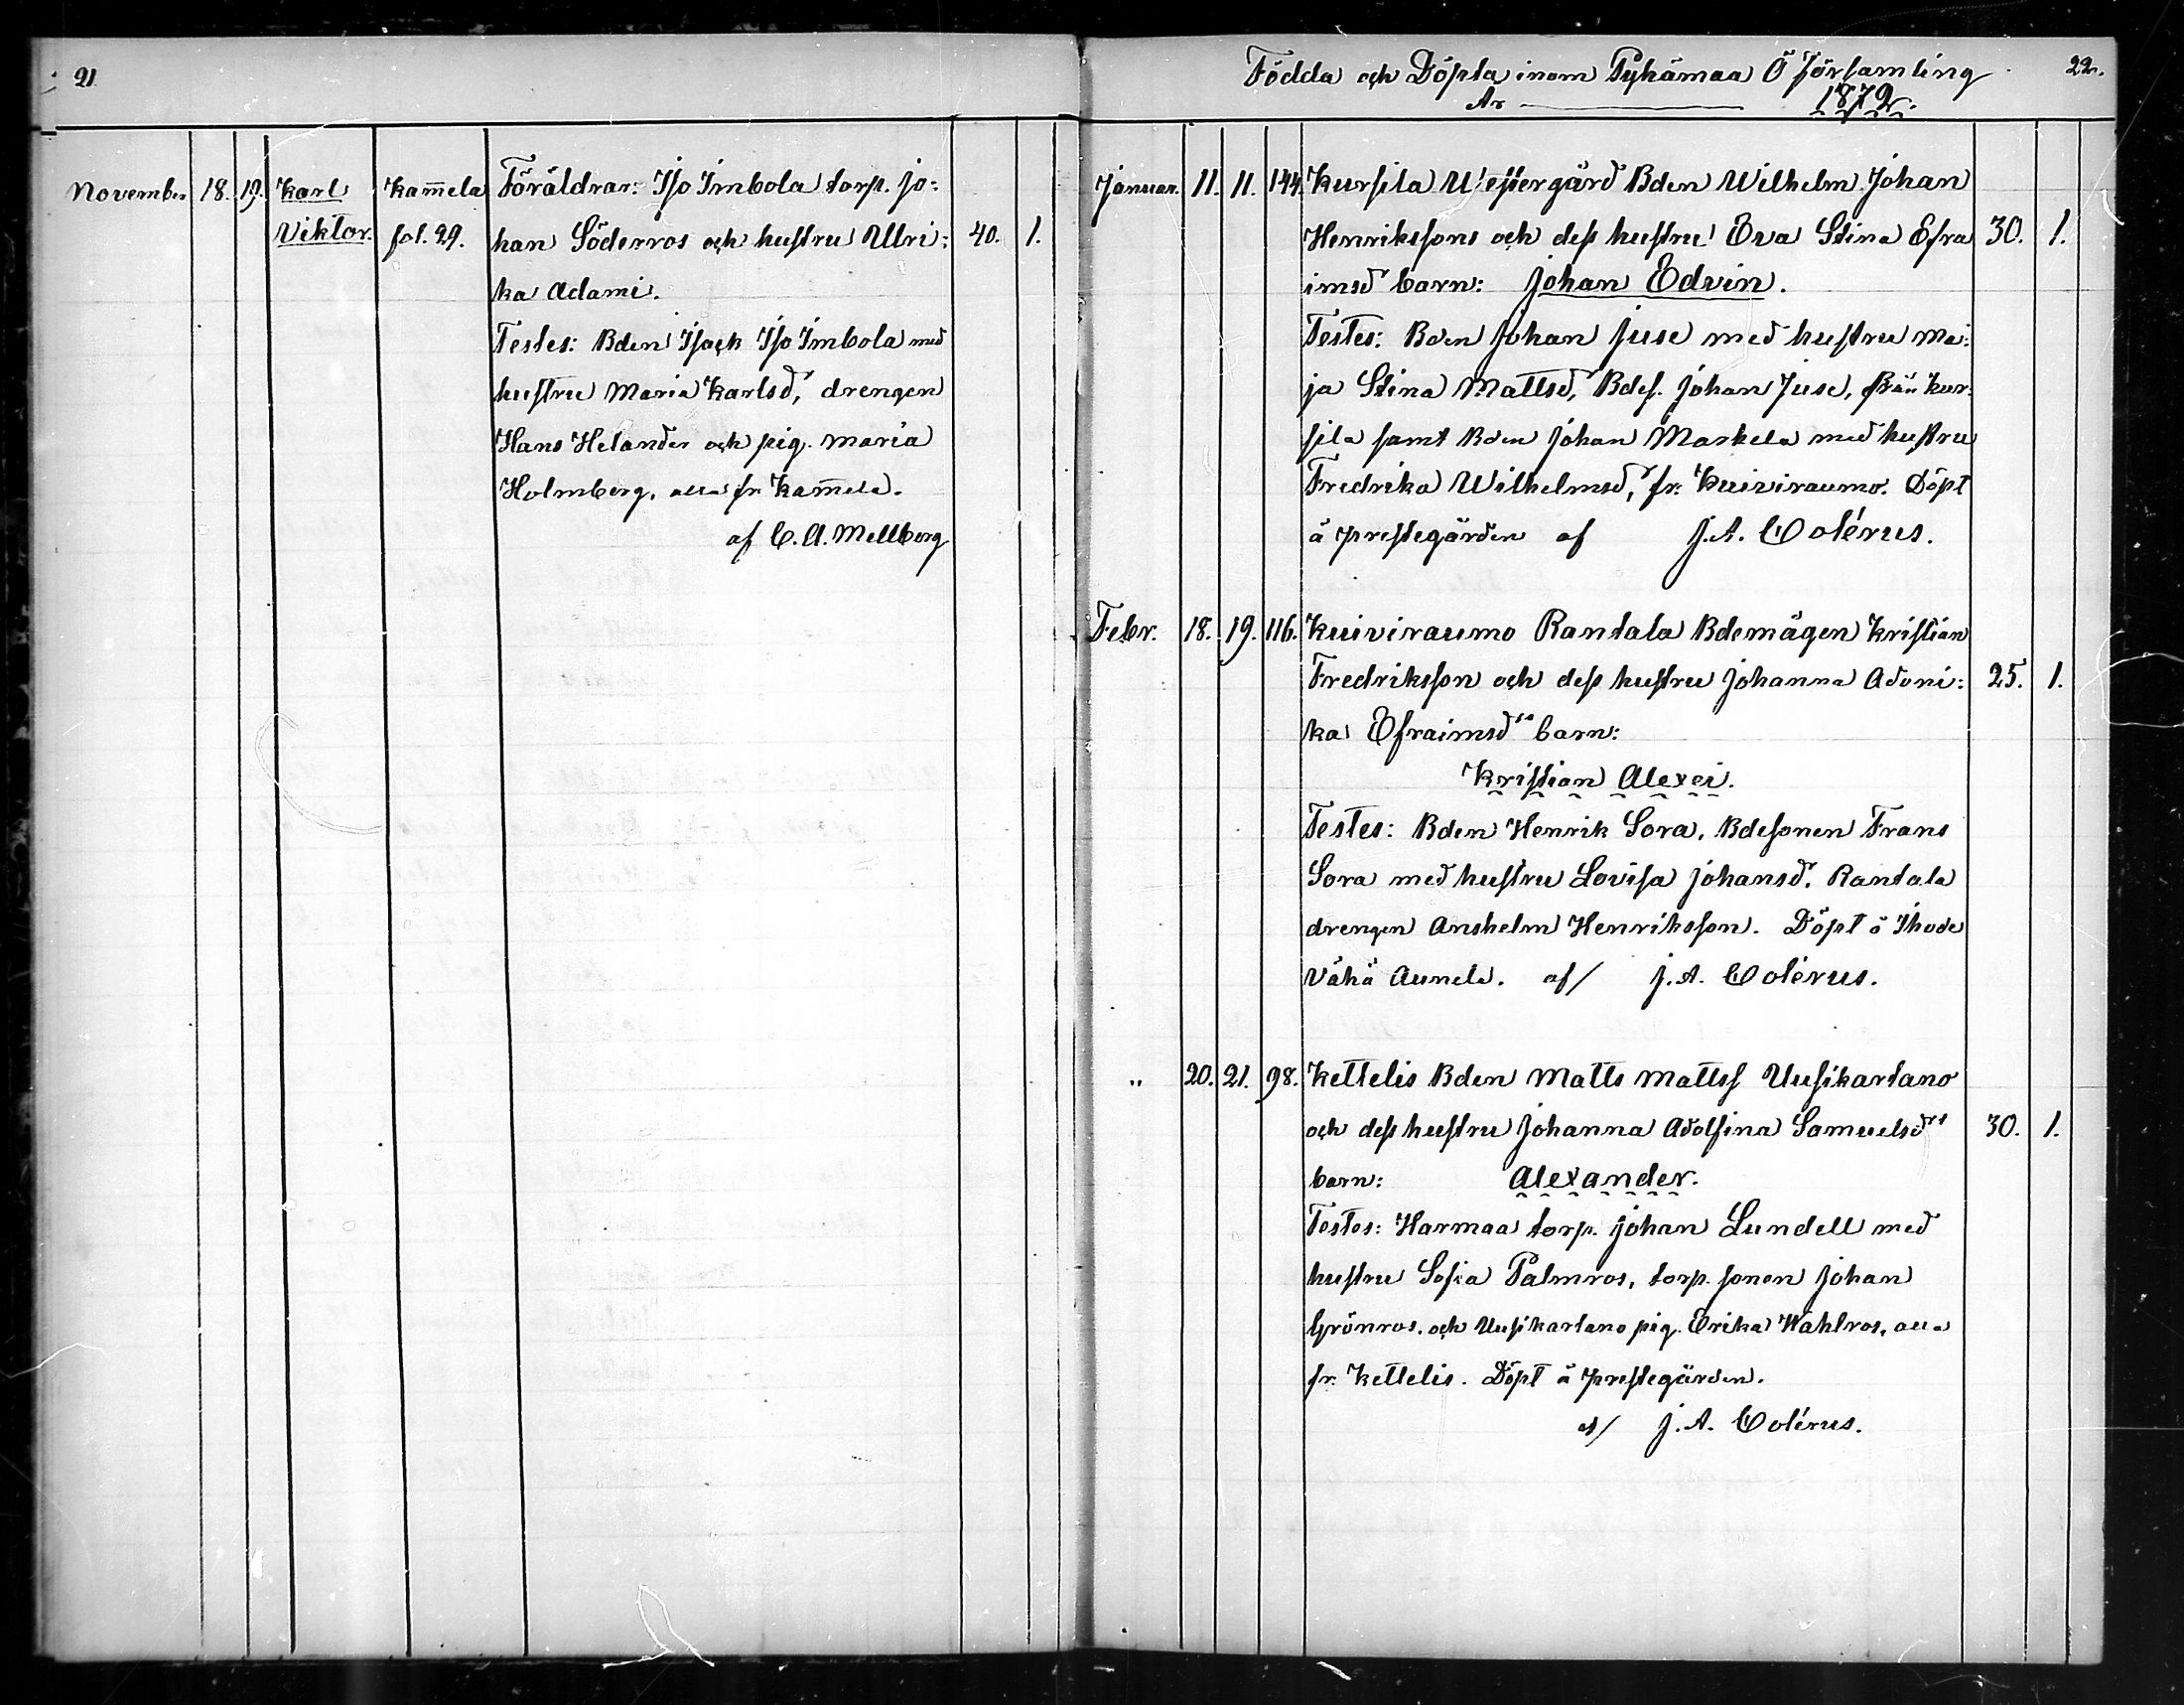 21
November 18. 19. Karl Kam̄ela Föräldrar: Iso Imbola torp. Jo:
Viktor. fol. 29. han Söderros och hustru Ulri: 40. 1.
ka Adami.
Testes: Bden Isack Iso Imbola med
hustru Maria Karlsd, drengen
Hans Helander och pig. Maria
Holmberg, alla fr Kam̄ela.
af C. A. Mellberg
Födda och Döpta inom Pyhämaa Ö Församling 22.
År 1872.
Januar. 11. 11. 144. Kursila Westergård Bden Wilhelm Johan
Henrikssons och dess hustru Eva Stina Efra 30. 1.
imsd barn: Johan Edvin.
Testes: Bden Johan Juse med hustru Ma:
ja Stina Mattsd, Bdes. Johan Juse, från Kur:
sila samt Bden Johan Markela med hustru
Fredrika Wilhelmsd, fr. Kuiviraumo. Döpt
å prestegården af J. A. Colérus.
Febr. 18. 19. 116. Kuiviraumo Rantala Bdemågen Kristian
Fredriksson och dess hustru Johanna Adoni: 25. 1.
ka Efraimsd's barn:
Kristian Alexei.
Testes: Bden Henrik Sora, Bdesonen Frans
Sora med hustru Lovisa Johansd. Rantala
drengen Anshelm Henriksson. Döpt å Ihode
Vähä Aunela. af/ J. A. Colérus.
" 20. 21. 98. Kettelis Bden Matts Mattss Uusikartano
och dess hustru Johanna Adolfina Samuelsd's 30. 1.
barn: Alexander.
Testes: Harmaa torp. Johan Lundell med
hustru Sofia Palmros, torp. sonen Johan
Grönros. och Uusikartano pig. Erika Wahlros, alla
fr. Kettelis. Döpt å prestegården.
af/ J. A. Colérus.